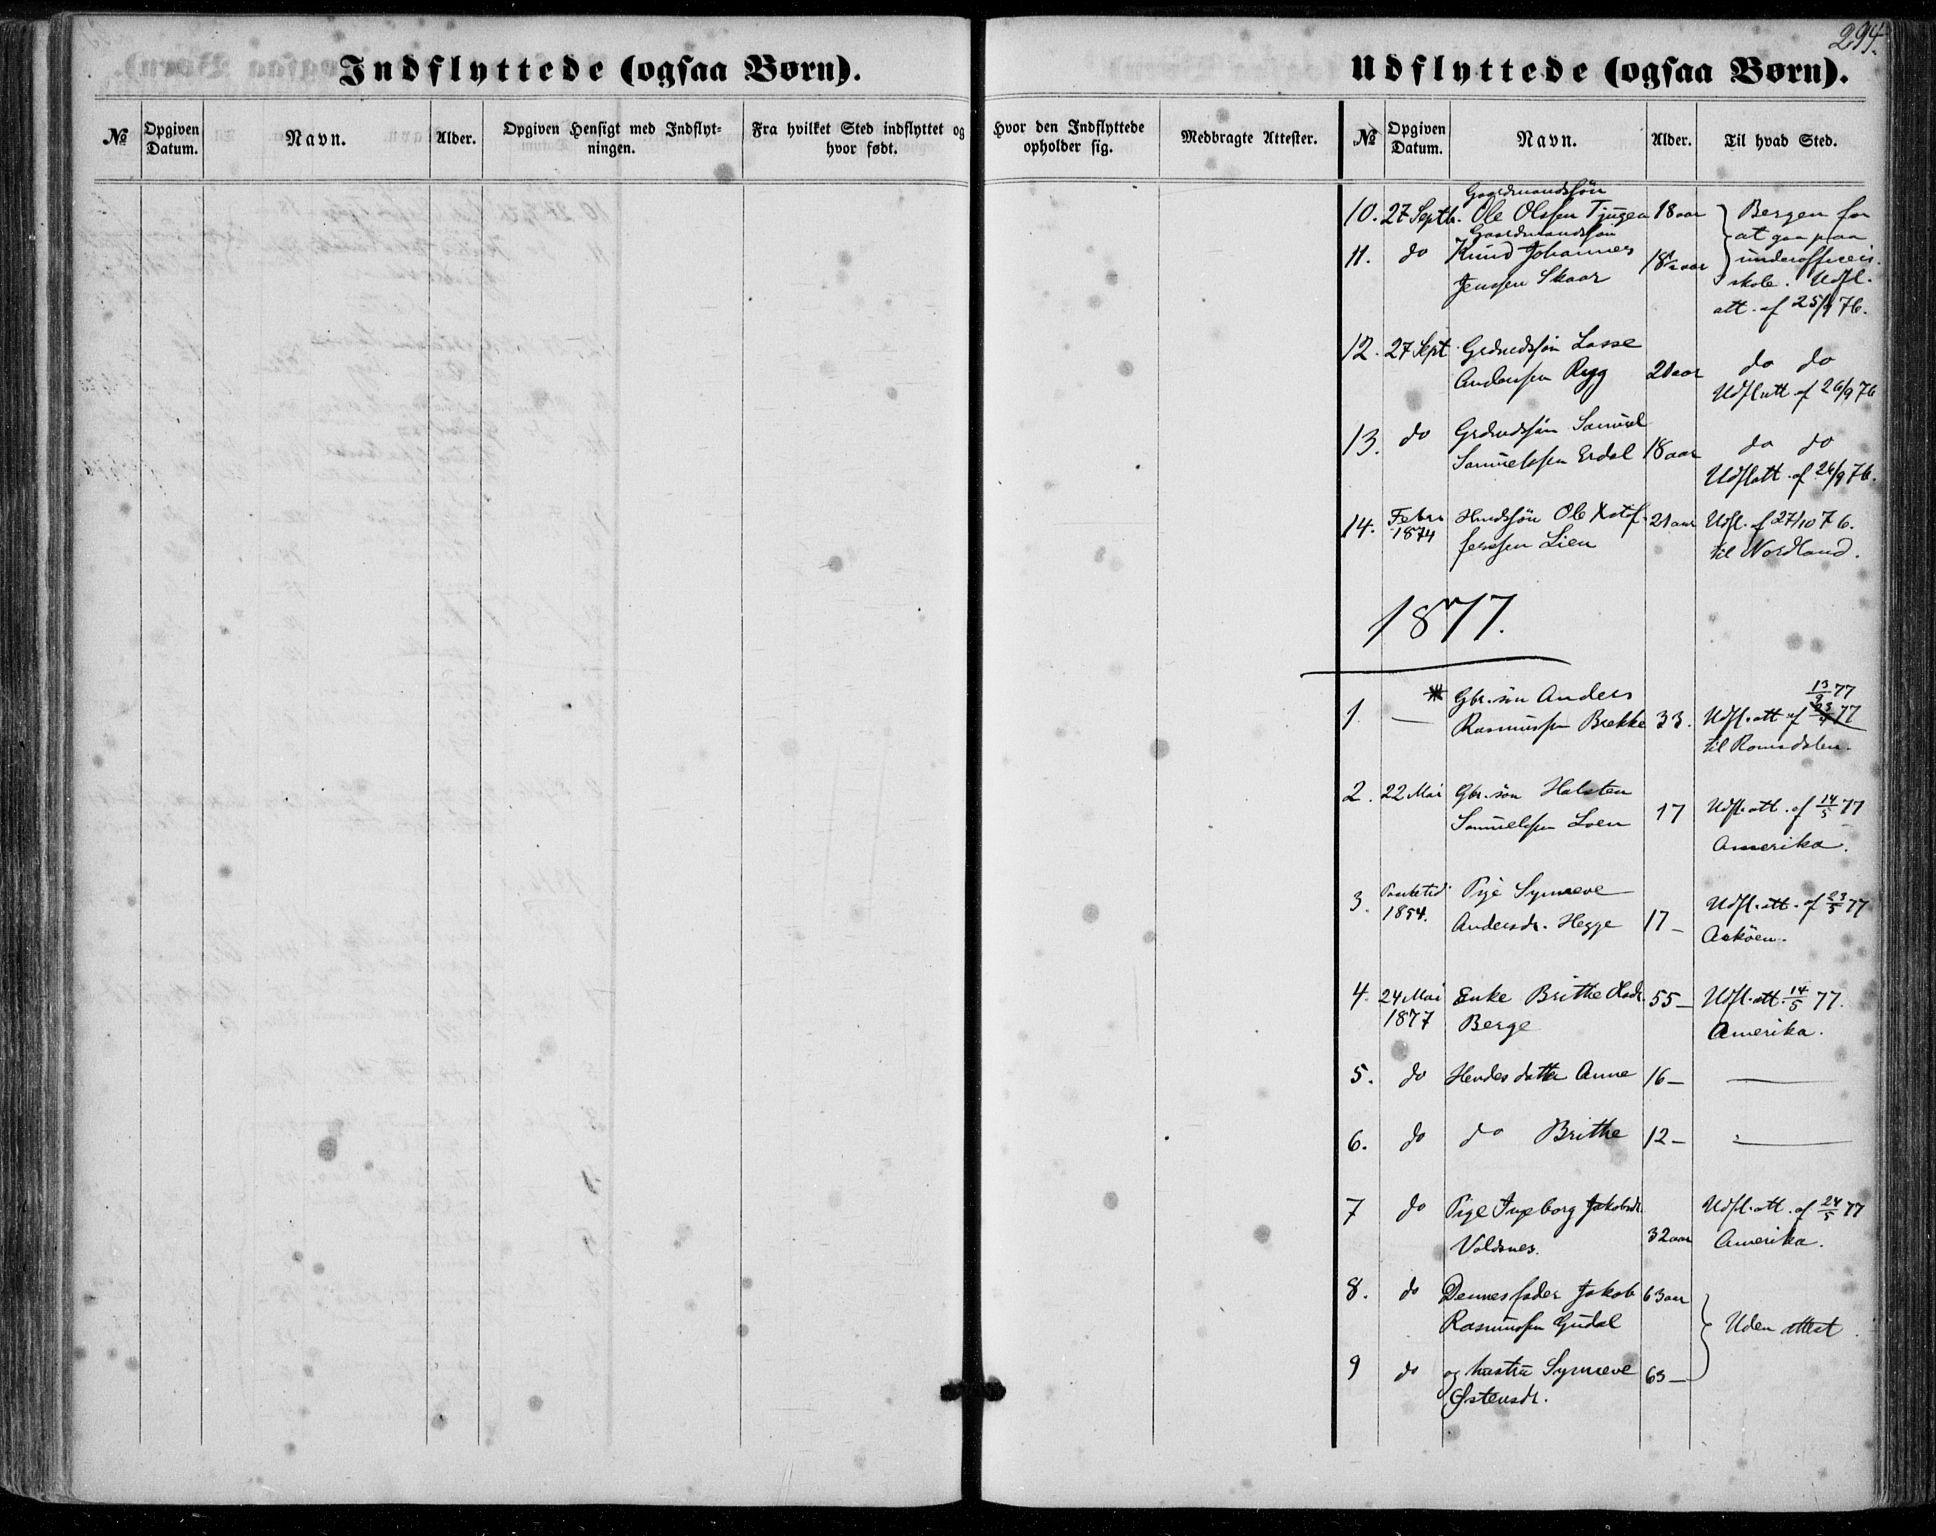 294.
Indflyttede (ogsaa Børn).
Udflyttede (ogsaa Børn).
№
Opgiven Datum.
Navn.
Alder.
Opgiven Hensigt med Indflyt-
ningen.
Fra hvilket Sted indflyttet og
hvor født.
Hvor den Indflyttede
opholder sig.
Medbragte Attester.
№
Opgiven Datum.
Navn.
Alder.
Til hvad Sted.
Gaardmandssøn
10. 27 Septb. Ole Olsen Tjugen 18 aar Bergen for
Gaardmandssøn at gaa paa
11. do Knud Johannes 18½ aar underofficeers
Jensen Skaar skole. Udfl.
att. af 25/9 76.
12. 27 Sept Grdmdssøn Lasse
Andersen Rygg 21 aar do do
Udfl att af 26/9 76
13. do Grdmdssøn Samuel
Samuelssen Erdal 18 aar do do
Udfl att. af 26/9 76.
14. Febr. Hmdssøn Ole Kstof- 21 aar Udfl. af 27/10 76.
1874 fersen Lien til Nordland.
1877.
Gbr. søn Anders 13/9 77
1 — Rasmussen Brekke 33. Udfl. att af 23/4 77
til Romsdalen.
2. 22 Mai Gbr. søn Halsten
Samuelssen Loen 17 Udfl. att. af 14/5 77
Amerika.
3. Pige Synneve
1854. Andersdr. Hegge 17 — Udfl. att. af 23/5 77
Askøen.
4. 24 Mai Enke Brithe 55 — Udfl. att. 14/5 77.
1877 Berge Amerika.
5. do Hendes datter Anne 16 — —
6. do do Brithe 12 — —
7 do Pige Ingeborg Jakobsdr. Udfl. att. af 24/5 77
Valdsnes. 32 aar Amerika.
8. do Dennes fader Jakob 63 aar
Rasmussen Gudal Uden attest.
9 do og hustru Synneve 65 —
Østensdr.